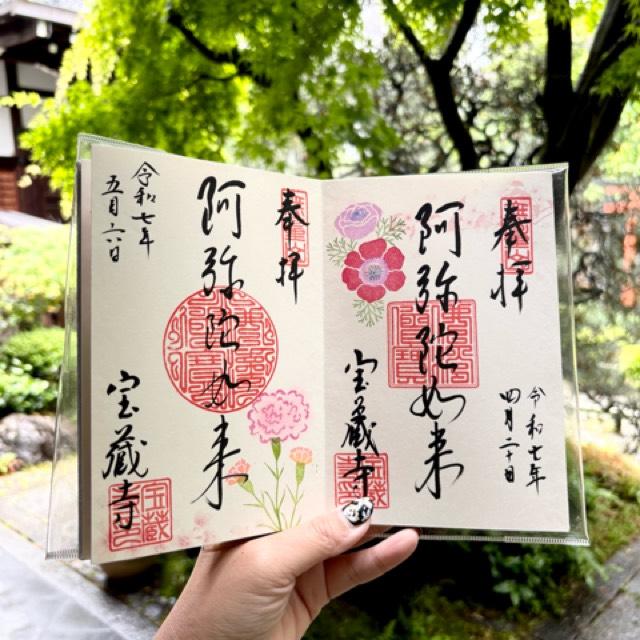 奉拝
阿弥陀如来
令和七年
四月二十日
宝蔵寺
奉拝
阿弥陀如来
令和七年
五月六日
宝蔵寺